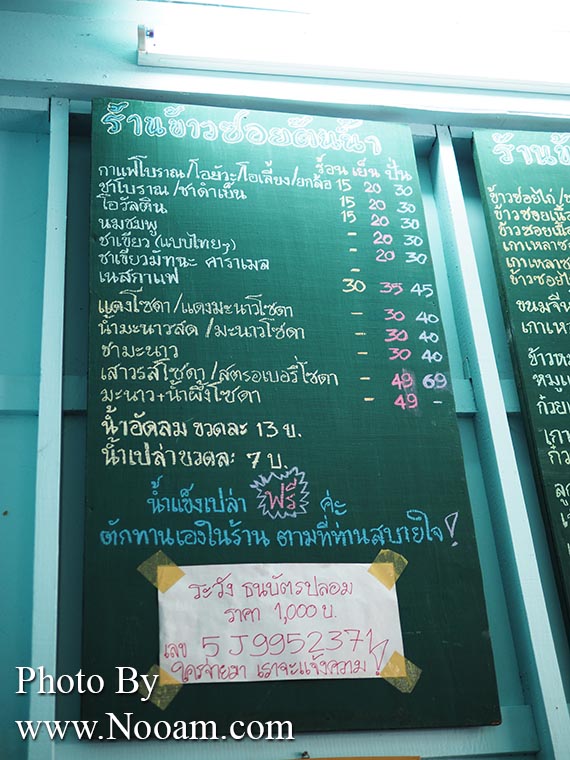 ร้านข้าวซอยต้นน้ำ
ร้อน เย็น ปั่น
กาแฟโบราณ/โอยัวะ/โอเลี้ยง/ยกล้อ 15 20 30
ชาโบราณ/ชาดำเย็น 15 20 30
โอวัลติน 15 20 30
นมชมพู - 20 30
ชาเขียว (แบบไทยๆ) - 20 30
ชาเขียวมัทฉะ คาราเมล -
เนสกาแฟ 30 35 45
แดงโซดา/แดงมะนาวโซดา - 30 40
น้ำมะนาวสด/มะนาวโซดา - 30 40
ชามะนาว - 30 40
เสาวรสโซดา/สตรอเบอรี่โซดา - 49 69
มะนาว+น้ำผึ้งโซดา - 49 -
น้ำอัดลม ขวดละ 13 บ.
น้ำเปล่าขวดละ 7 บ.
น้ำแข็งเปล่า ฟรี ค่ะ
ตักทานเองในร้าน ตามที่ท่านสบายใจ!
ระวัง ธนบัตรปลอม
ราคา 1,000 บ.
เลข 5J9952371
ใครจ่ายมา เราจะแจ้งความ!!
ร้านข้า
ข้าวซอยไก่/
ข้าวซอยเนื้อ
ข้าวซอยเนื้อ
เกาเหลาซ
เกาเหลาซ
ข้าวซอย
ขนมจีน
เกาเห
ข้าวห
หมูแ
ก๋วยเ
เกา
ก๋ว
ลู
Photo By
www.Nooam.com